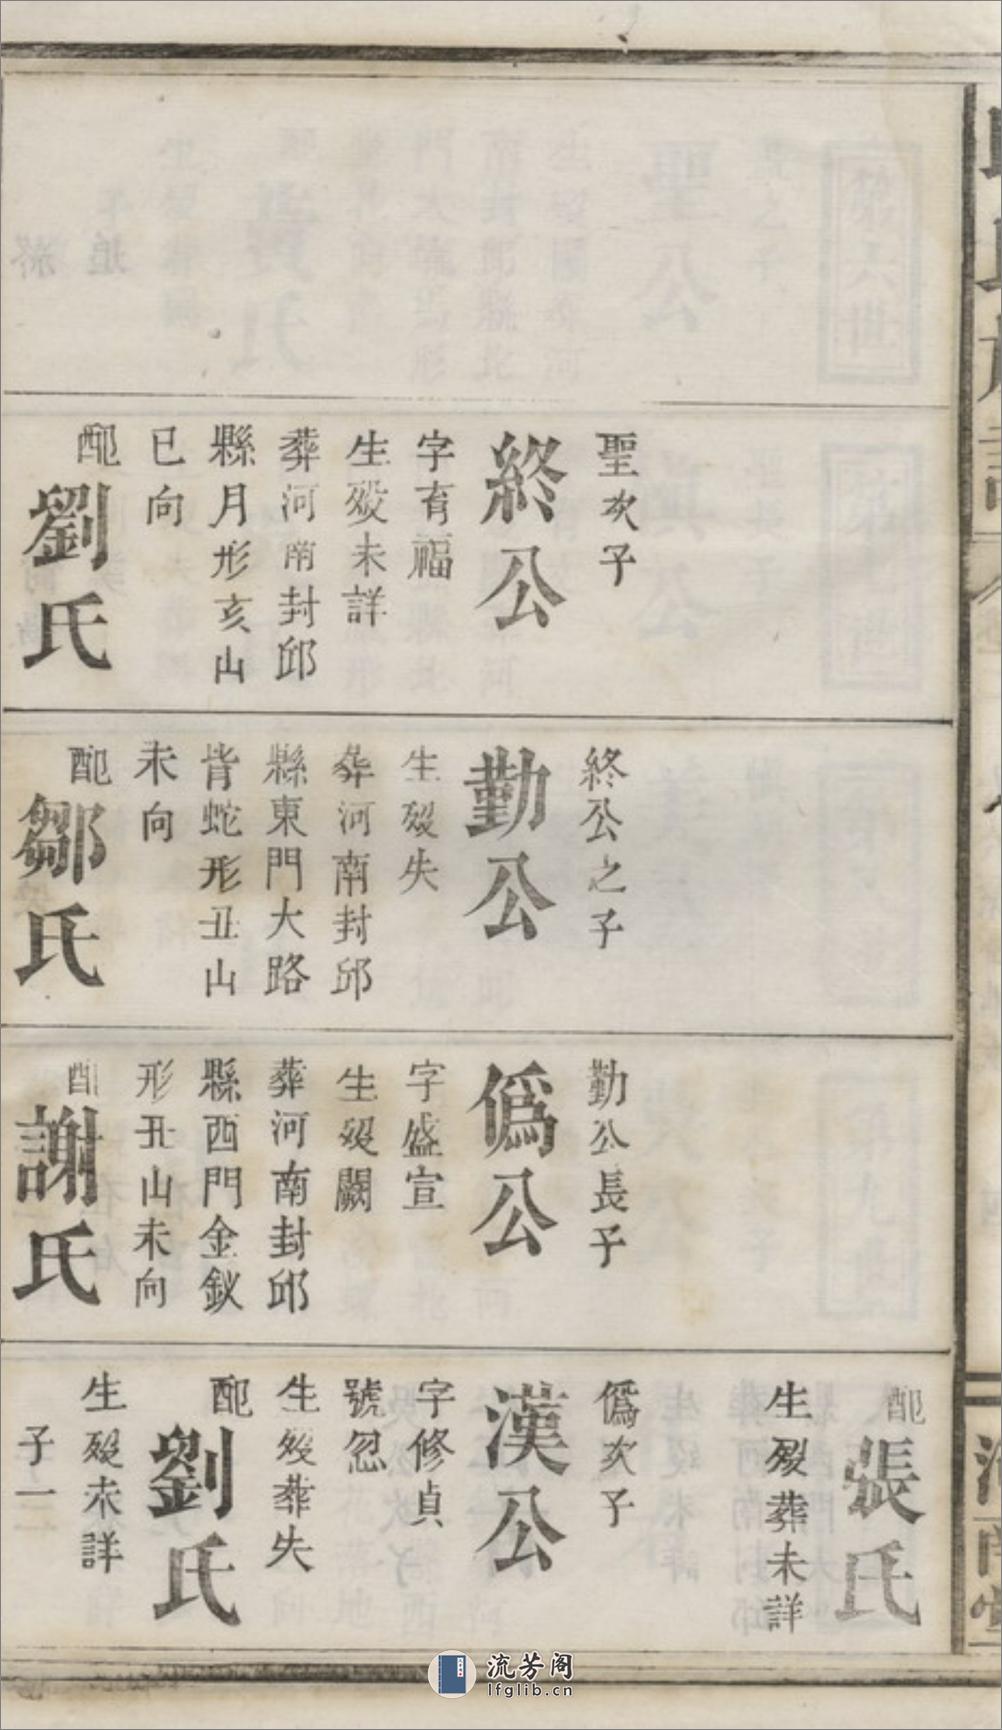 聖次子
終公
字有福
生殁未詳
葬河南封邱
縣月形亥山
巳向
配
劉氏
終公之子
勤公
生殁失
葬河南封邱
縣東門大路
背蛇形丑山
未向
配
鄒氏
勤公長子
偽公
字盛宣
生殁闕
葬河南封邱
縣西門金釵
形丑山未向
配
謝氏
配
張氏
生殁葬未詳
偽次子
漢公
字修貞
號忽
生殁葬失
配
劉氏
生殁未詳
子一
流芳阁
lfglib.cn